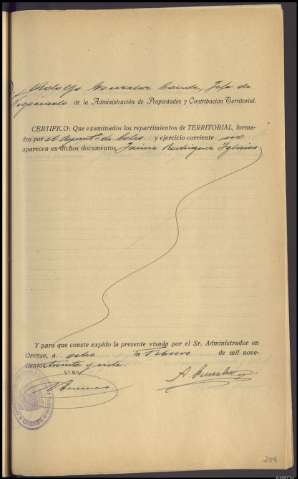 Adolfo González Conde, Jefe de
Negociado de la Administración de Propiedades y Contribución Territorial.
CERTIFICO: Que examinados los repartimientos de TERRITORIAL, forma-
dos por el Aymtº de Boles y ejercicio corriente no
aparece en dichos documentos, Jaime Rodríguez Iglesias
Y para que conste expido la presente visada por el Sr. Administrador en
Orense, a ocho de Febrero de mil nove-
cientos treinta y ocho.
Vº Bº
A. González